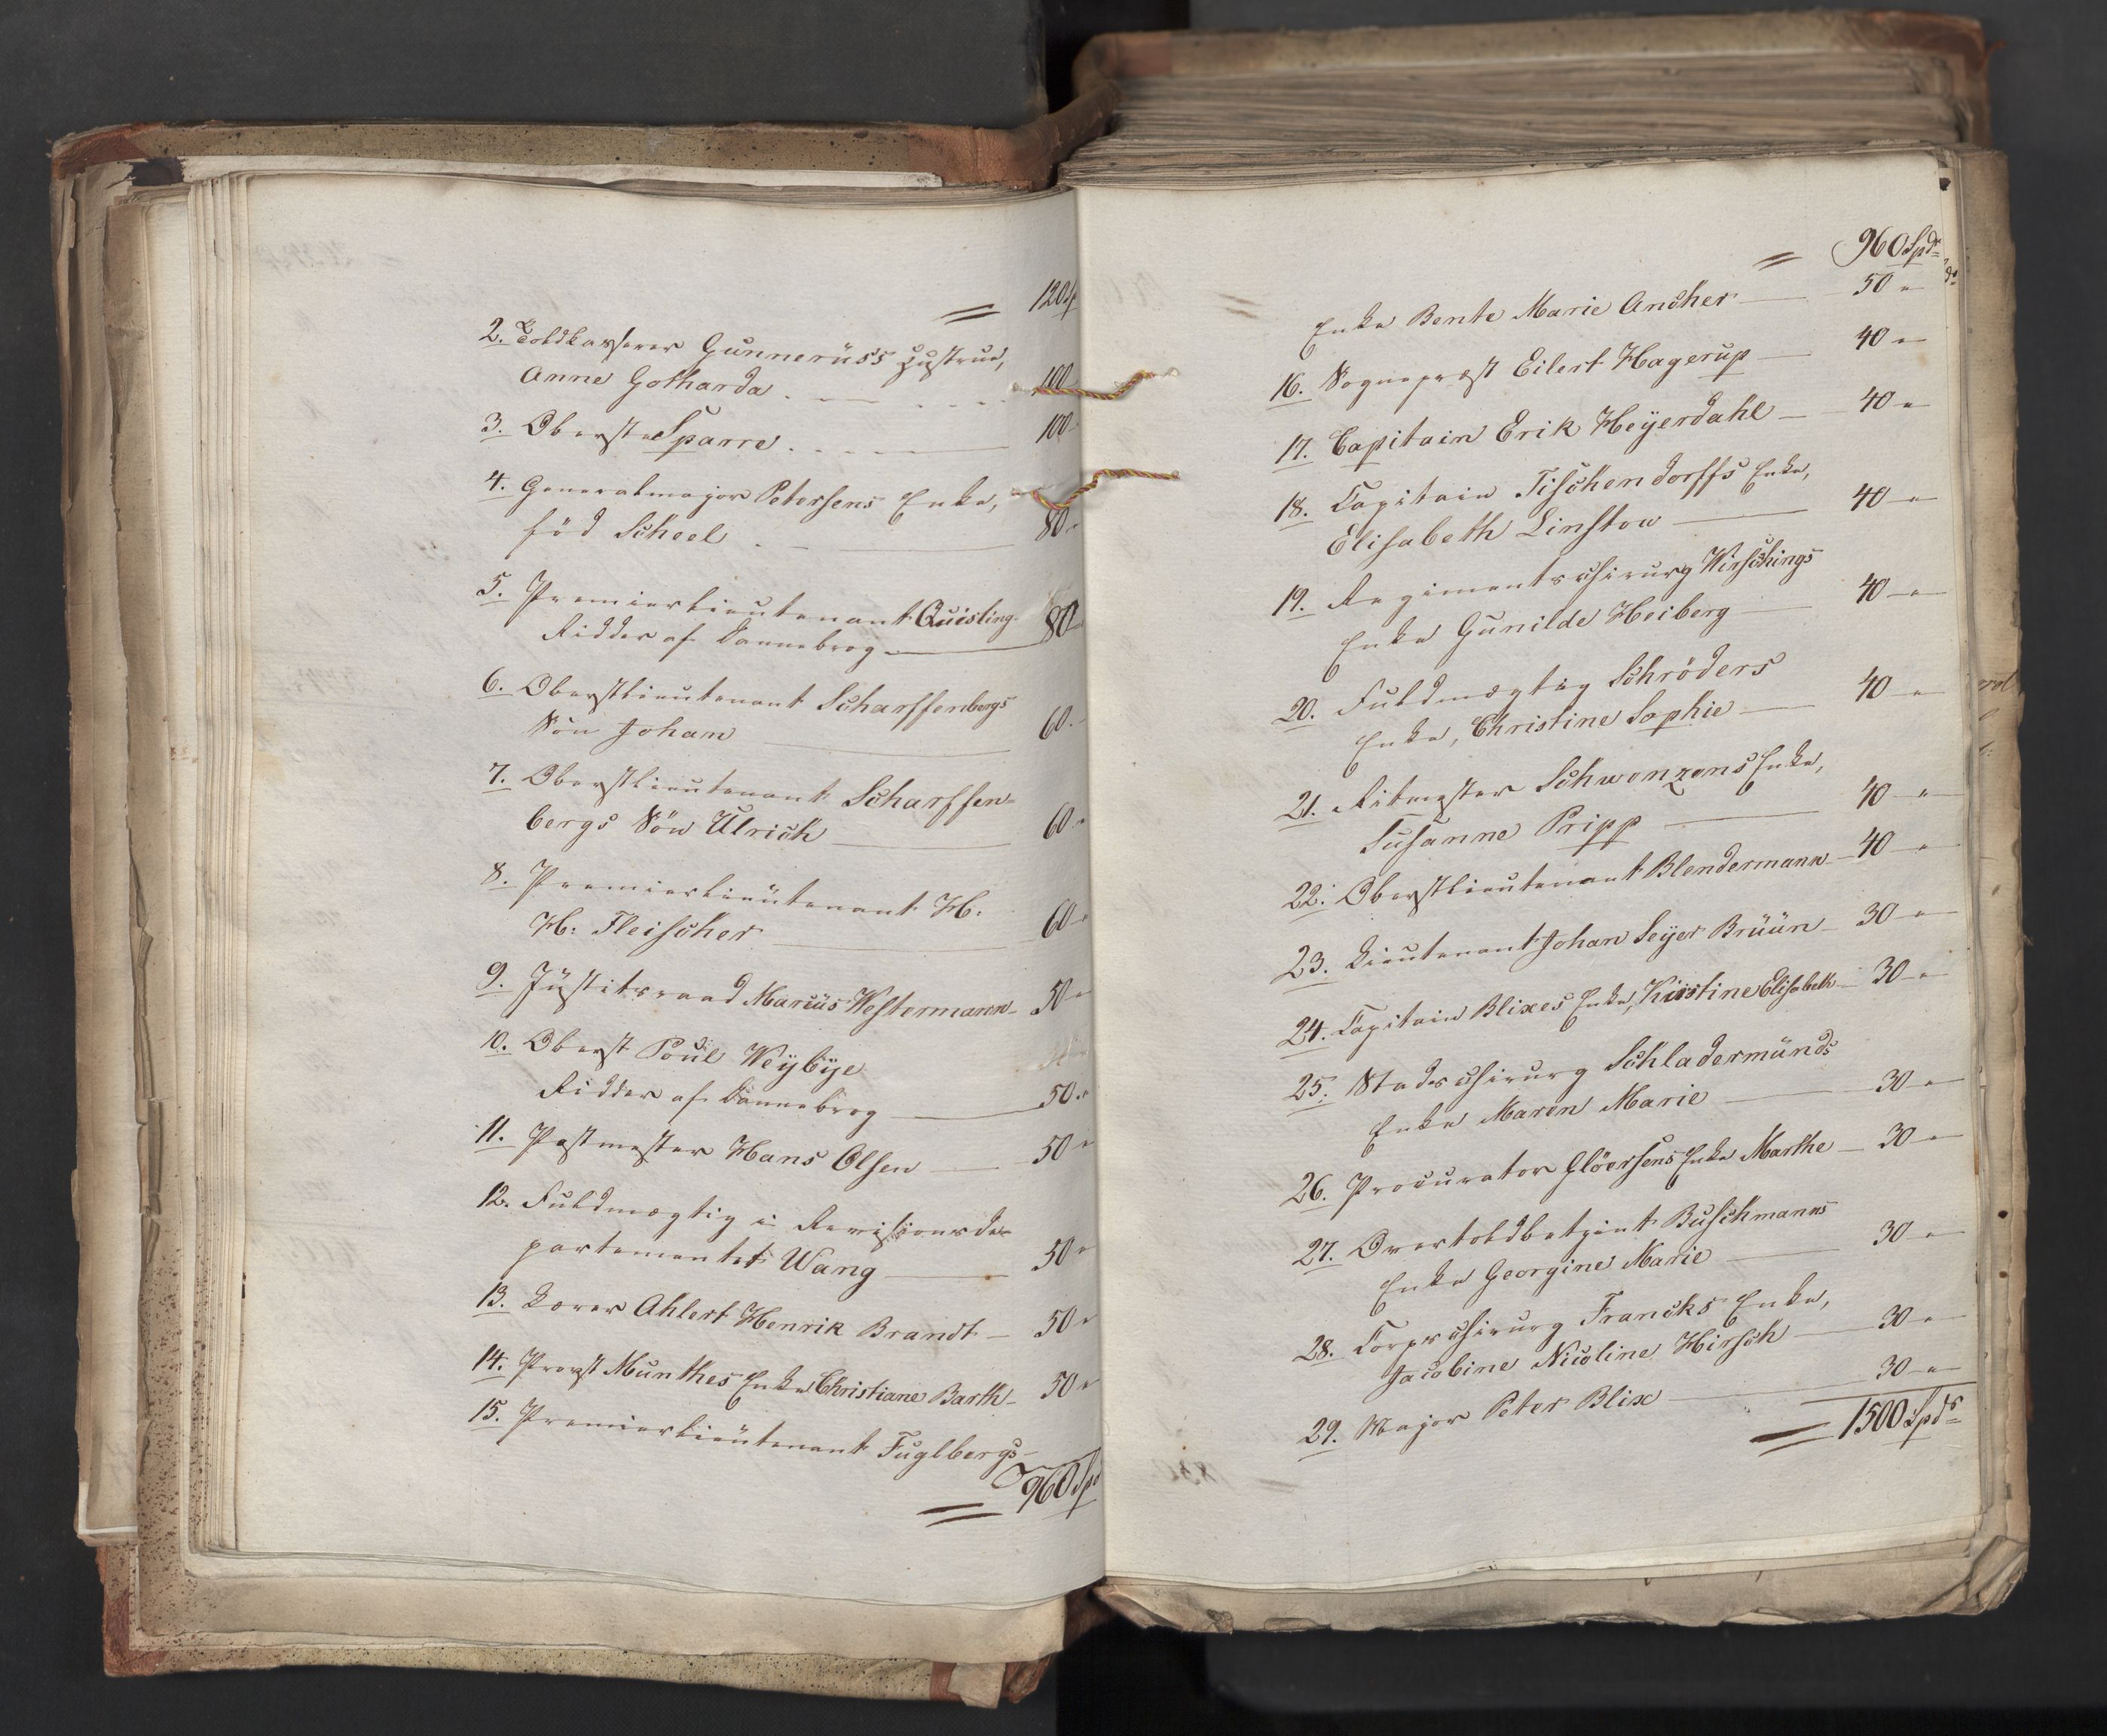 = 120 Sp
2. Toldkasserer Gunneruss Hustrue,
Anne Gotharda . — . . . 100
3. Oberste Sparre . . — 100
4. Generalmajor Petersens Enke,
föd Scheel . — 80 "
5. Premierlieutenant Quisling
Ridder af Dannebrog — 80
6. Oberstlieutenant Scharffenbergs
Sön Johan — 60 "
7. Oberstlieutenant Scharffen-
bergs Sön Ulrich — 60 "
8. Premierlieutenant H.
H: Fleischer — 60 "
9. Justitsraad Marcus Westermann — 50 "
10. Oberst Poul Weybye
Ridder af Dannebrog — 50 "
11. Postmester Hans Olsen — 50 "
12. Fuldmægtig i Revisionsde-
partementet Wang — 50 "
13. Lærer Ahlert Henrik Brandt — 50 "
14. Provst Munthes Enke Christiane Barth — 50 "
15. Premierlieutenant Fuglbergs
= 960 Sp
= 960 Spdr
Enke Bente Marie Ancher — 50 "
16. Sognepræst Eilert Hagerup — 40 "
17. Capitain Erik Heyerdahl — 40 "
18. Capitain Tischendorffs Enke,
Elisabeth Linstow — 40 "
19. Regimentschirurg Wirschings
Enke Gunilde Heiberg — 40 "
20. Fuldmægtig Schröders
Enke, Christine Sophie — 40 "
21. Ritmester Schwenzens Enke,
Susanne Pripp — 40 "
22. Oberstlieutenant Blendermann — 40 "
23. Lieutenant Johan Seyer Bruun — 30 "
24. Capitain Blixes Enke, Kirstine Elisabeth — 30 "
25. Stadschirurg Schladermunds
Enke Maren Marie — 30 "
26. Procurator Glöersens Enke Marthe — 30 "
27. Overtoldbetjent Buschmanns
Enke Georgine Marie — 30 "
28. Corpschirurg Francks Enke,
Jacobine Nicoline Hirsch — 30 "
29. Major Peter Blix — 30 "
= 1500 Spdr